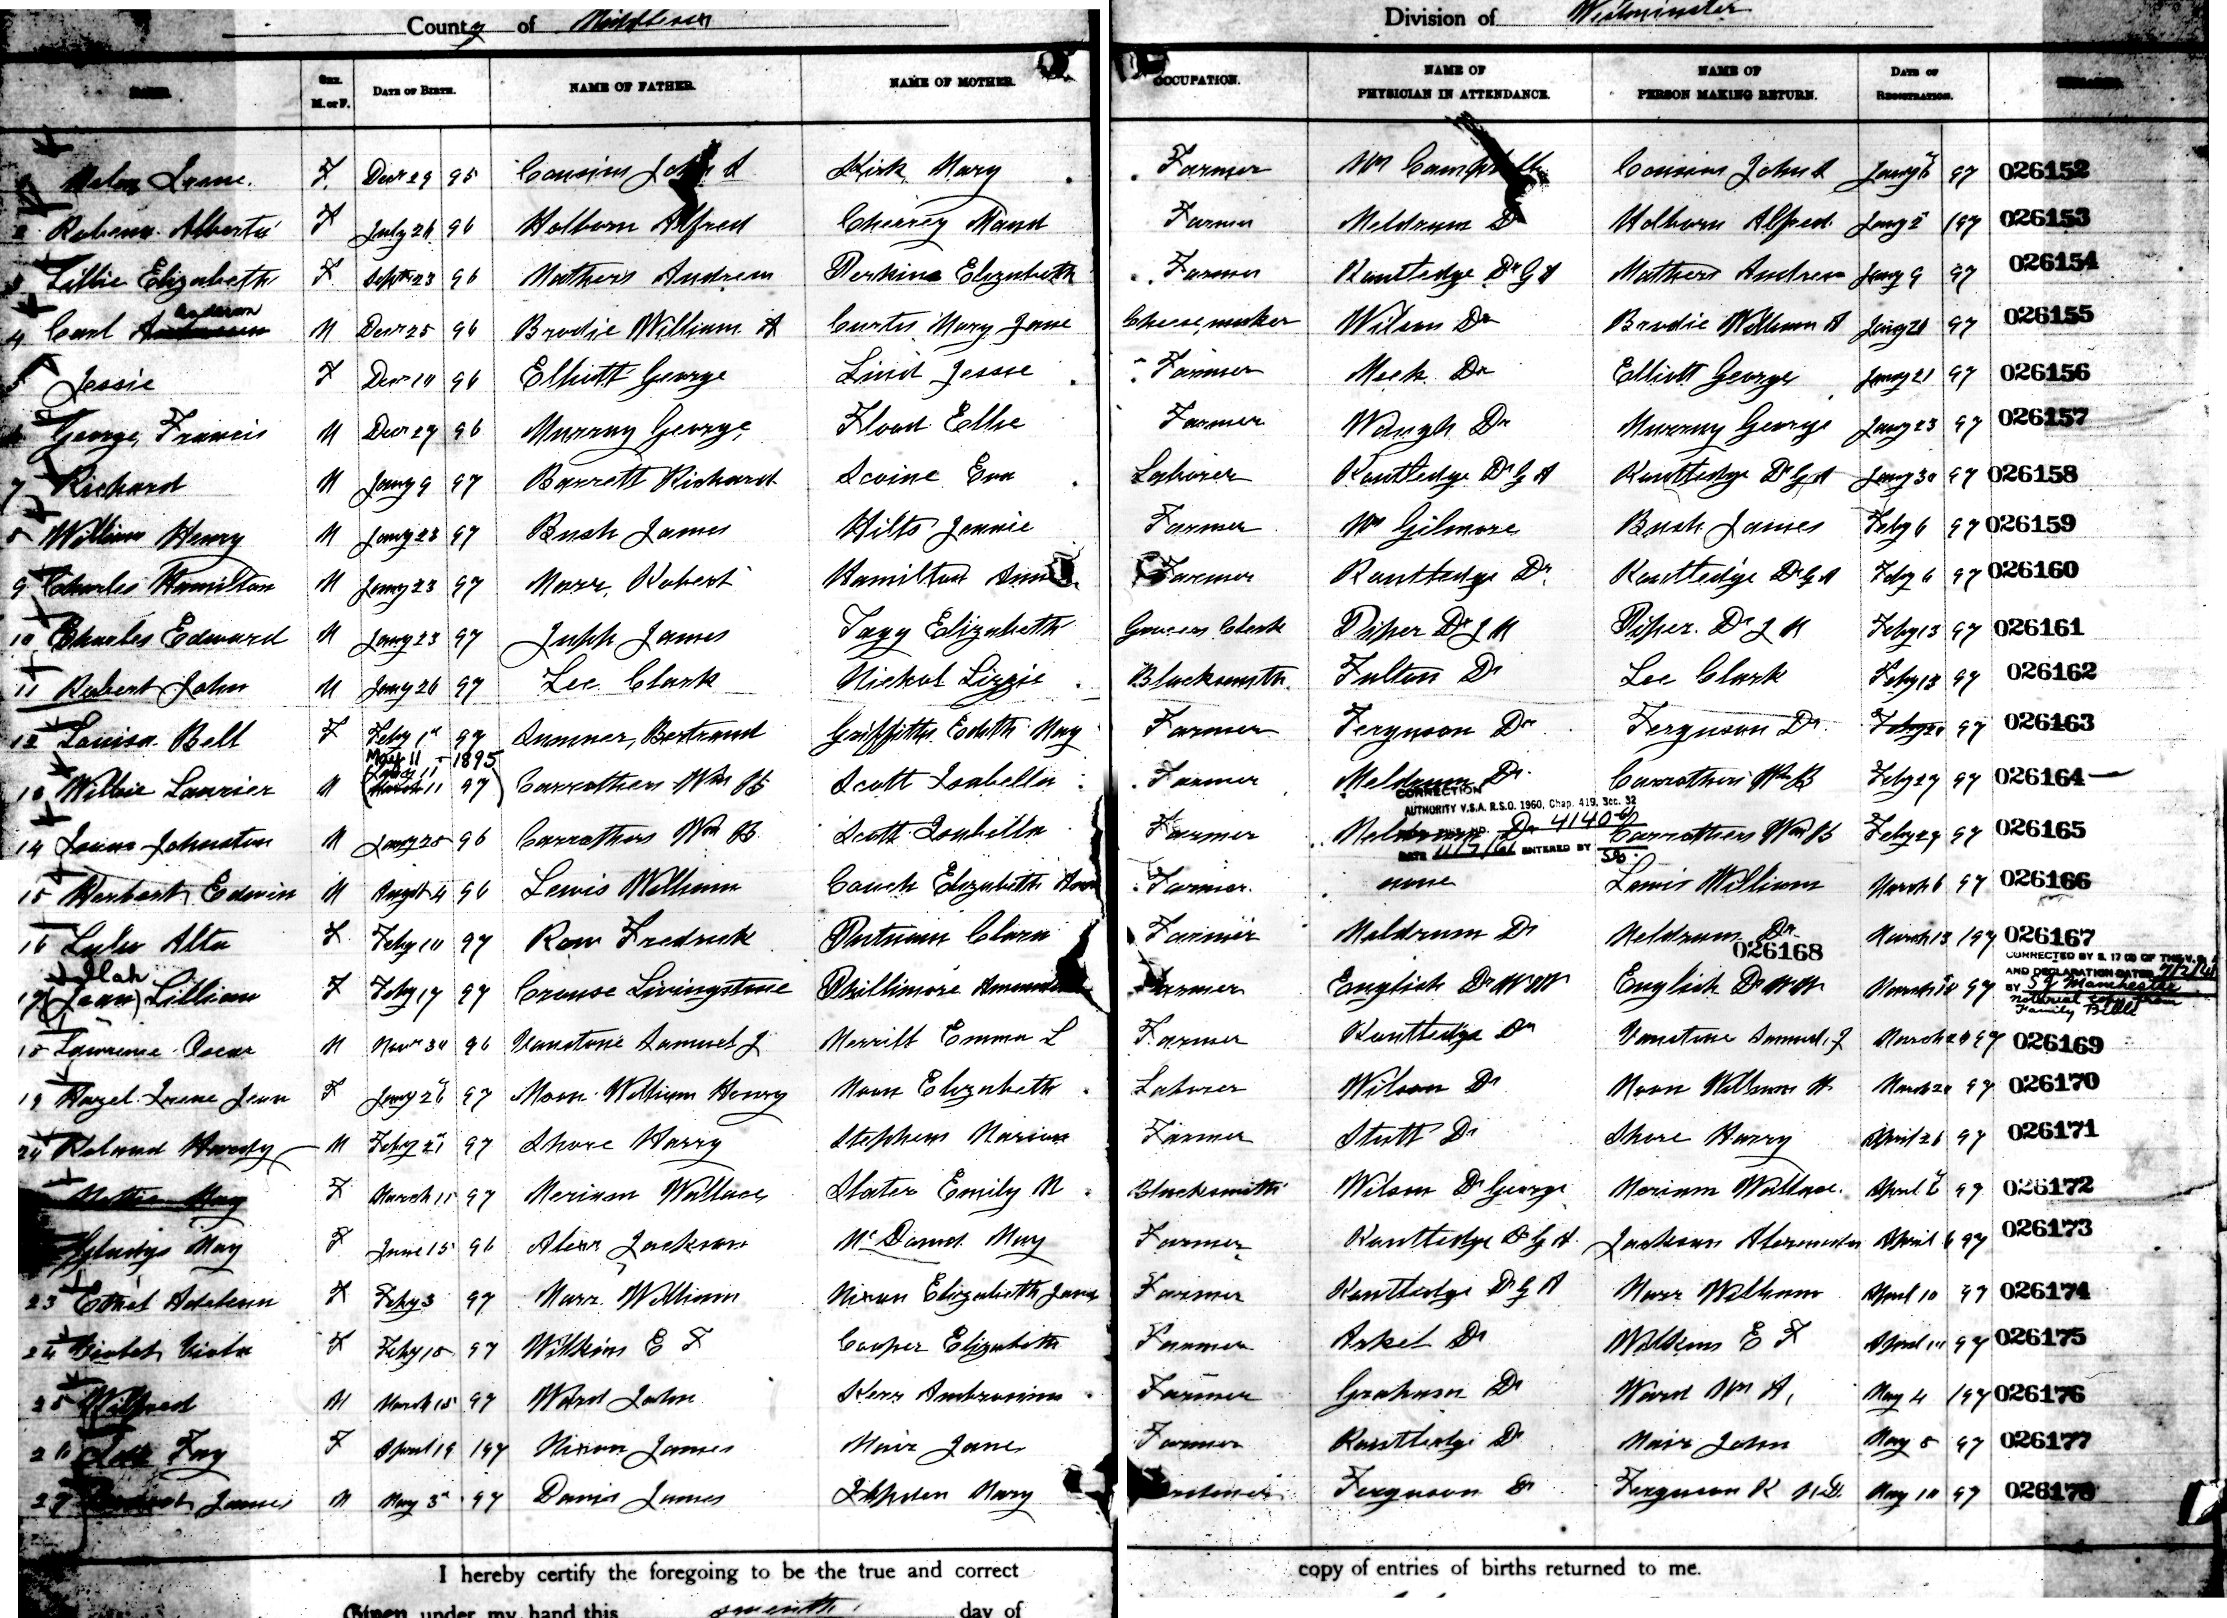 County of Middlesex Division of Westminster
NAME. SEX. M. or F. DATE OF BIRTH. NAME OF FATHER. NAME OF MOTHER. OCCUPATION. NAME OF PHYSICIAN IN ATTENDANCE. NAME OF PERSON MAKING RETURN. DATE OF REGISTRATION. REMARKS.
Irene. F. Decr 29 95 Cousins John Kirk Mary Farmer Wm Campbell Cousins John Jany 97 026152
2 Alberta F July 26 96 Holborn Alfred Maud Farmer Meldrum Dr Holborn Alfred. Jany 5 97 026153
3 Lillie Elizabeth F Septr 23 96 Mathers Andrew Perkins Elizabeth Farmer Routledge Dr G A Mathers Andrew Jany 9 97 026154
4 Carl Anderson M Decr 25 96 Brodie William A Curtis Mary Jane Cheesemaker Wilson Dr Brodie William A Jany 97 026155
5 Jessie F Decr 96 Elliott George Jessie Farmer Meek Dr Elliott George Jany 21 97 026156
6 George Francis M Decr 27 96 Murray George Flood Ellie Farmer Waugh Dr Murray George Jany 23 97 026157
7 Richard M Jany 9 97 Barrett Richard Eva Laborer Routledge Dr G A Routledge Dr G A Jany 30 97 026158
8 William Henry M Jany 23 97 Bush James Hilts Jennie Farmer Wm Gilmore Bush James Feby 6 97 026159
9 Charles Hamilton M Jany 23 97 Marr Robert Hamilton Farmer Routledge Dr. Routledge Dr G A Feby 6 97 026160
10 Charles Edward M Jany 23 97 Jupp James Tagg Elizabeth Grocers Clerk Piper Dr J M Piper. Dr J M Feby 13 97 026161
11 Robert John M Jany 26 97 Lee Clark Nichol Lizzie Blacksmith. Fulton Dr Lee Clark Feby 13 97 026162
12 Louisa Bell F Feby 1st 97 Sumner, Bertrand Griffith Edith May Farmer Ferguson Dr Ferguson Dr. Feby 97 026163
May 11 - 1895
13 Willie Laurier M (March 11 97) Carrothers Wm B Scott Isabella Farmer Meldrum Dr. Carrothers Wm B Feby 27 97 026164
CORRECTION
AUTHORITY V.S.A. R.S.O. 1960, Chap. 419, Sec. 32
14 James Johnston M Jany 25 96 Carrothers Wm B Scott Isabella Farmer Meldrum Dr 41404 Carrothers Wm B Feby 27 97 026165
DATE ENTERED BY
15 Herbert Edwin M Augst 4 96 Lewis William Couch Elizabeth Ann Farmer. none Lewis William March 6 97 026166
16 Lulu Alta F Feby 10 97 Row Fredrick Putnam Clara Farmer Meldrum Dr Meldrum Dr. March 13 97 026167
026168
CORRECTED BY S. 17 (3) OF THE V.S.A
Ilah AND DECLARATION DATED 7/2/41
17 (Jean) Lillian F Feby 17 97 Crouse Livingstone Phillimore Amanda Farmer English Dr W W English Dr W W March 97 BY S G Manchester
notarial copy from
Family Bible
18 Lawrence Oscar M Novr 30 96 Vanstone Samuel J Merrill Emma L Farmer Routledge Dr Vanstone Samuel J March 20 97 026169
19 Hazel Irene Jean F Jany 26 97 Moon William Henry Moon Elizabeth Laborer Wilson Dr Moon William H. March 20 97 026170
20 Roland Handy M Feby 21 97 Shore Harry Stephens Marion Farmer Stutt Dr Shore Harry April 26 97 026171
Mattie May F March 11 97 Meriam Wallace Slater Emily M Blacksmith Wilson Dr George Meriam Wallace. April 6 97 026172
Gladys May F June 15 96 Alexr Jackson Mary Farmer Routledge Dr G A Jackson Alexander April 6 97 026173
23 Ethel F Feby 3 97 Marr William Nixon Elizabeth Jane Farmer Routledge Dr G A Marr William April 10 97 026174
24 Violet Viola F Feby 15 97 Wilkins E F Cooper Elizabeth Farmer Arkel Dr Wilkins E F April 97 026175
25 Wilfred M March 15 97 Ward John Kerr Farmer Grahnson Dr Ward Wm A, May 4 97 026176
26 Fay F April 19 97 Nixon James Mair Jane Farmer Routledge Dr Mair John May 8 97 026177
27 James M May 3rd 97 Davis James Mary Ferguson Dr Ferguson K M.D. May 10 97 026178
I hereby certify the foregoing to be the true and correct copy of entries of births returned to me.
Given under my hand this seventh day of